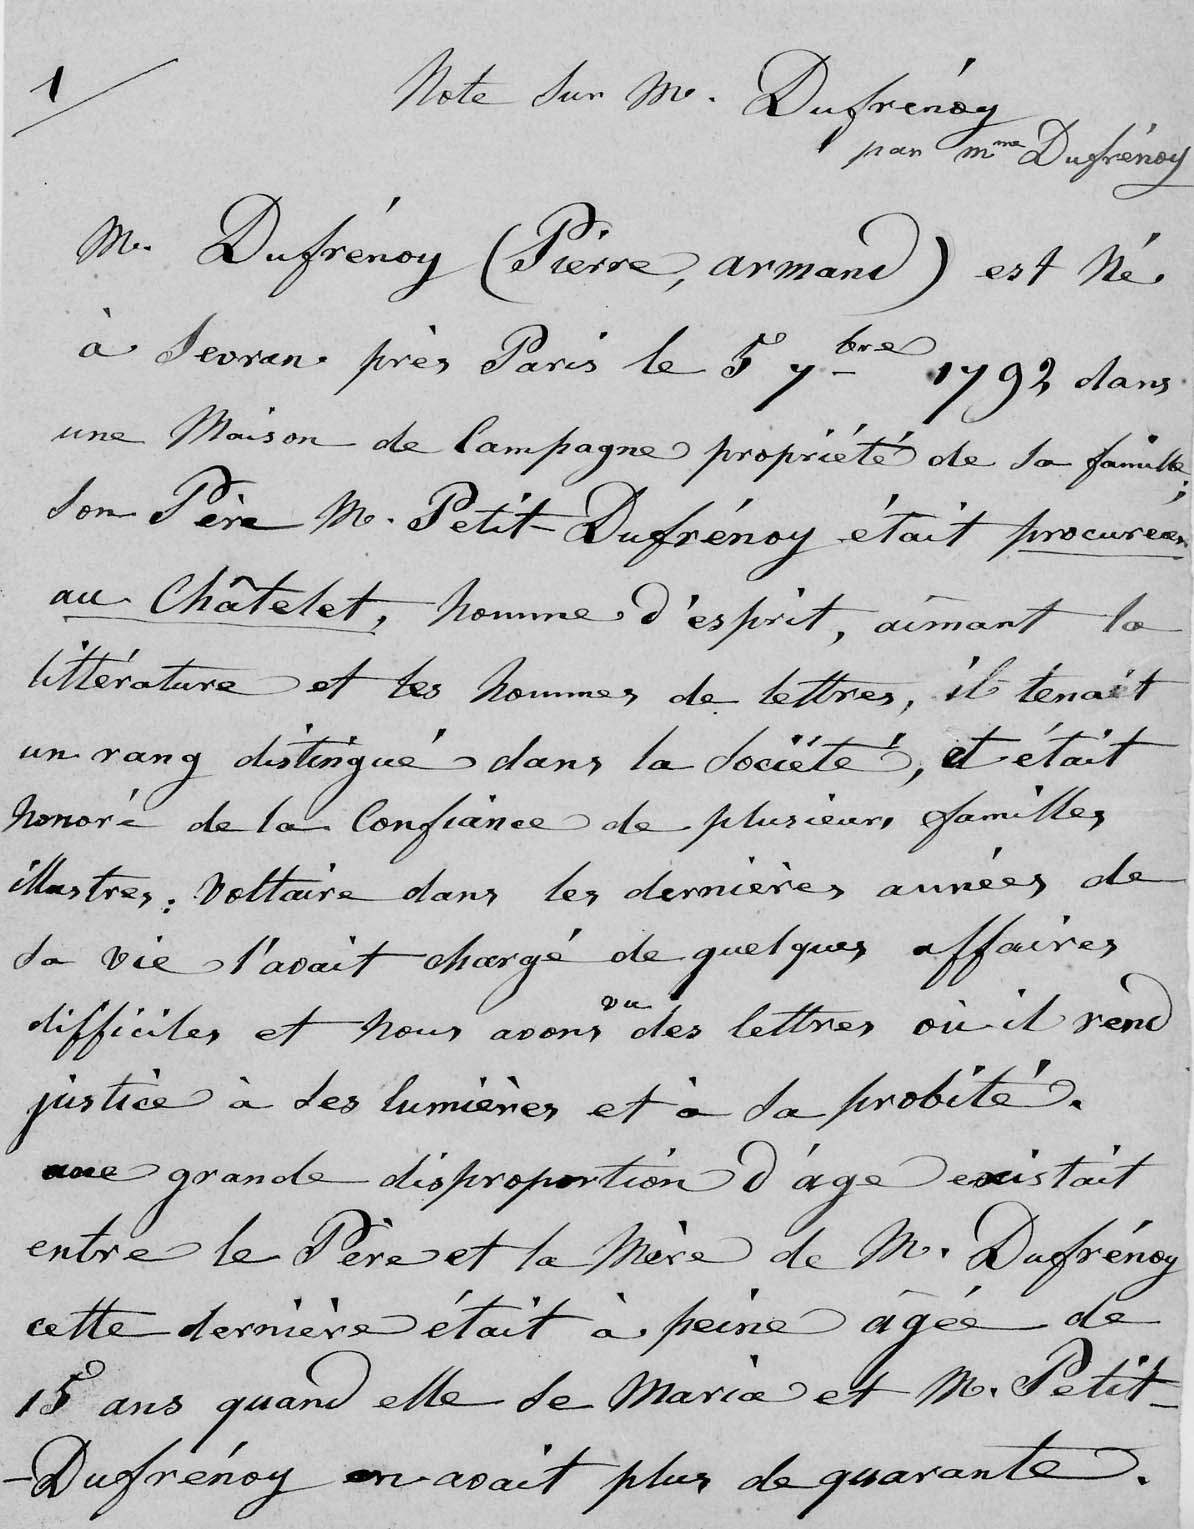 1/
Note sur M. Dufrénoy
par Mme Dufrénoy
M. Dufrénoy (Pierre, armand) est né
à Sevran près Paris le 5 7bre 1792 dans
une Maison de Campagne propriété de sa famille;
son Père M. Petit-Dufrénoy était procureur
au Châtelet, homme d'esprit, aimant la
littérature et les hommes de lettres, il tenait
un rang distingué dans la Société, et était
honoré de la Confiance de plusieurs familles
illustres; Voltaire dans les dernières années de
sa vie l'avait chargé de quelques affaires
difficiles et nous avons vu des lettres où il rend
justice à ses lumières et à sa probité.
une grande disproportion d'âge existait
entre le Père et la Mère de M. Dufrénoy
cette dernière était à peine âgée de
15 ans quand elle se Maria et M. Petit-
-Dufrénoy en avait plus de quarante.